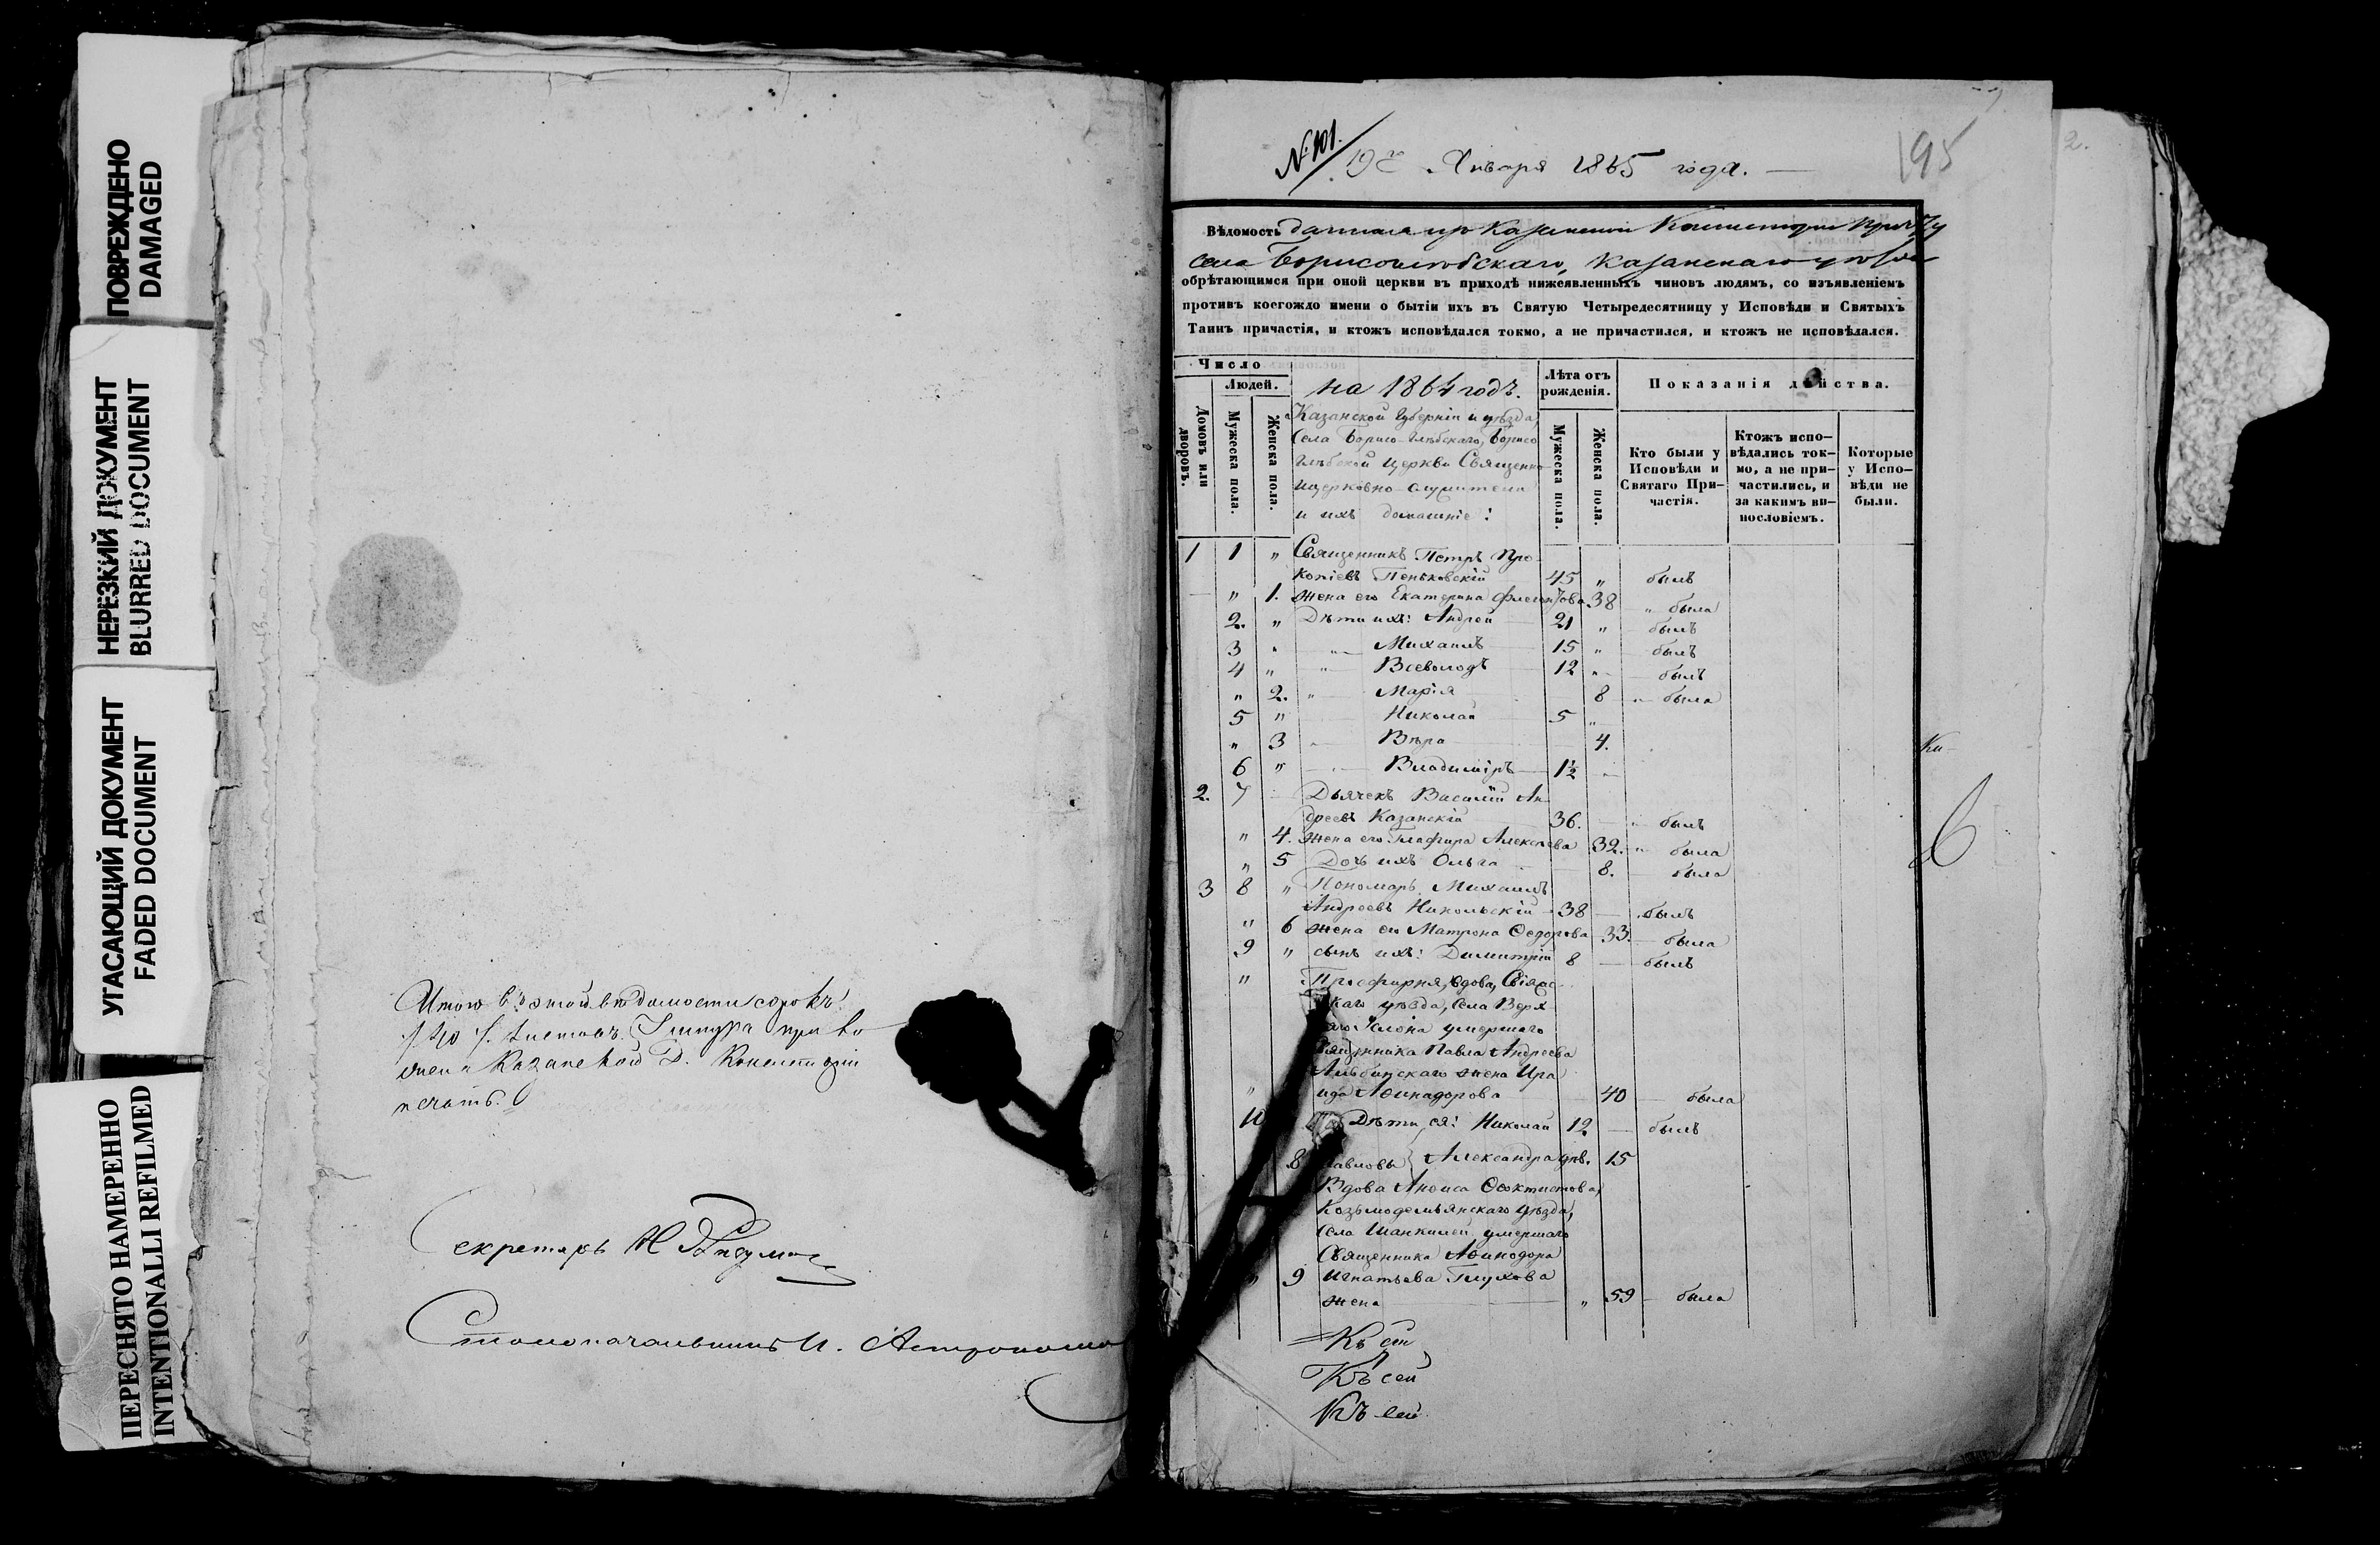 ПОВРЕЖДЕНО
DAMAGED
НЕРЕЗКИЙ ДОКУМЕНТ
BLURRED DOCUMENT
УГАСАЮЩИЙ ДОКУМЕНТ
FADED DOCUMENT
ПЕРЕСНЯТО НАМЕРЕННО
INTENTIONALLI REFILMED
Итого въ этой ведомости сорокъ
/40/. листовъ.
Казанской Д. Консисторіи
печать.
Секретарь
Столоначальникъ И.
№ 101.
19 Января 1865 года.
195
2.
Вѣдомость данная изъ Казанской Консисторіи причту
села Борисоглебскаго, Казанскаго уезда
обрѣтающимся при оной церкви въ приходѣ нижеявленныхъ чиновъ людямъ, со изъявленіемъ
противъ коегождо имени о бытіи ихъ въ Святую Четыредесятницу у Исповѣди и Святыхъ
Таинъ причастія, и ктожъ исповѣдался токмо, а не причастился, и ктожъ не исповѣдался.
Число
Людей.
Домовъ или дворовъ.
Мужеска пола.
Женска пола.
на 1864 годъ.
Казанской Губерніи и уѣзда,
Села Борисо-Глѣбскаго, Борисо
Глѣбской Церкви Священно
и церковно-служители
и ихъ домашніе:
Лѣта отъ рожденія.
Мужеска пола.
Женска пола.
Показанія дѣйства.
Кто были у Исповѣди и Святаго При-частія.
Ктожъ испо-вѣдались ток-мо, а не при-частились, и за какимъ ви-нословіемъ.
Которые у Испо-вѣди не были.
1 1 " Священникъ Петръ Про-
копіевъ Пеньковскій 45 " былъ
" 1. жена его Екатерина Флегонтова 38 " была
2. " Дѣти ихъ: Андрей 21 " былъ
3 " " Михаилъ 15 " былъ
4 " " Всеволодъ 12 " былъ
" 2. " Марія 8 " была
5 " Николай 5 "
" 3 Вѣра 4.
6 " Владиміръ 1½
2. 7 Дьячекъ Василій Ан-
дреевъ Казанскій 36. былъ
" 4. жена его Глафира Алексѣева 32. " была
" 5 Дочь ихъ Ольга 8. была
3 8 " Пономарь Михаилъ
Андреевъ Никольскій 38 былъ
" 6 жена его Матрона Ѳедорова 33. была
9 " сынъ ихъ: Димитрій 8 былъ
" Просфирня, вдова, Свіяж-
скаго уѣзда, села Верх
Услона умершаго
Священника Павла Андреева
Альбинскаго жена Ира
ида Аѳинадорова 40 была
10 Дѣти ея: Николай 12 былъ
8 Павловы Александра дѣв. 15
Вдова Анѳиса Ѳеоктистова,
Козьмодемьянскаго уѣзда,
Села умершаго
Священника Аѳинодора
" 9 Игнатьева Глухова
жена " 59 была
Къ сей
Къ сей